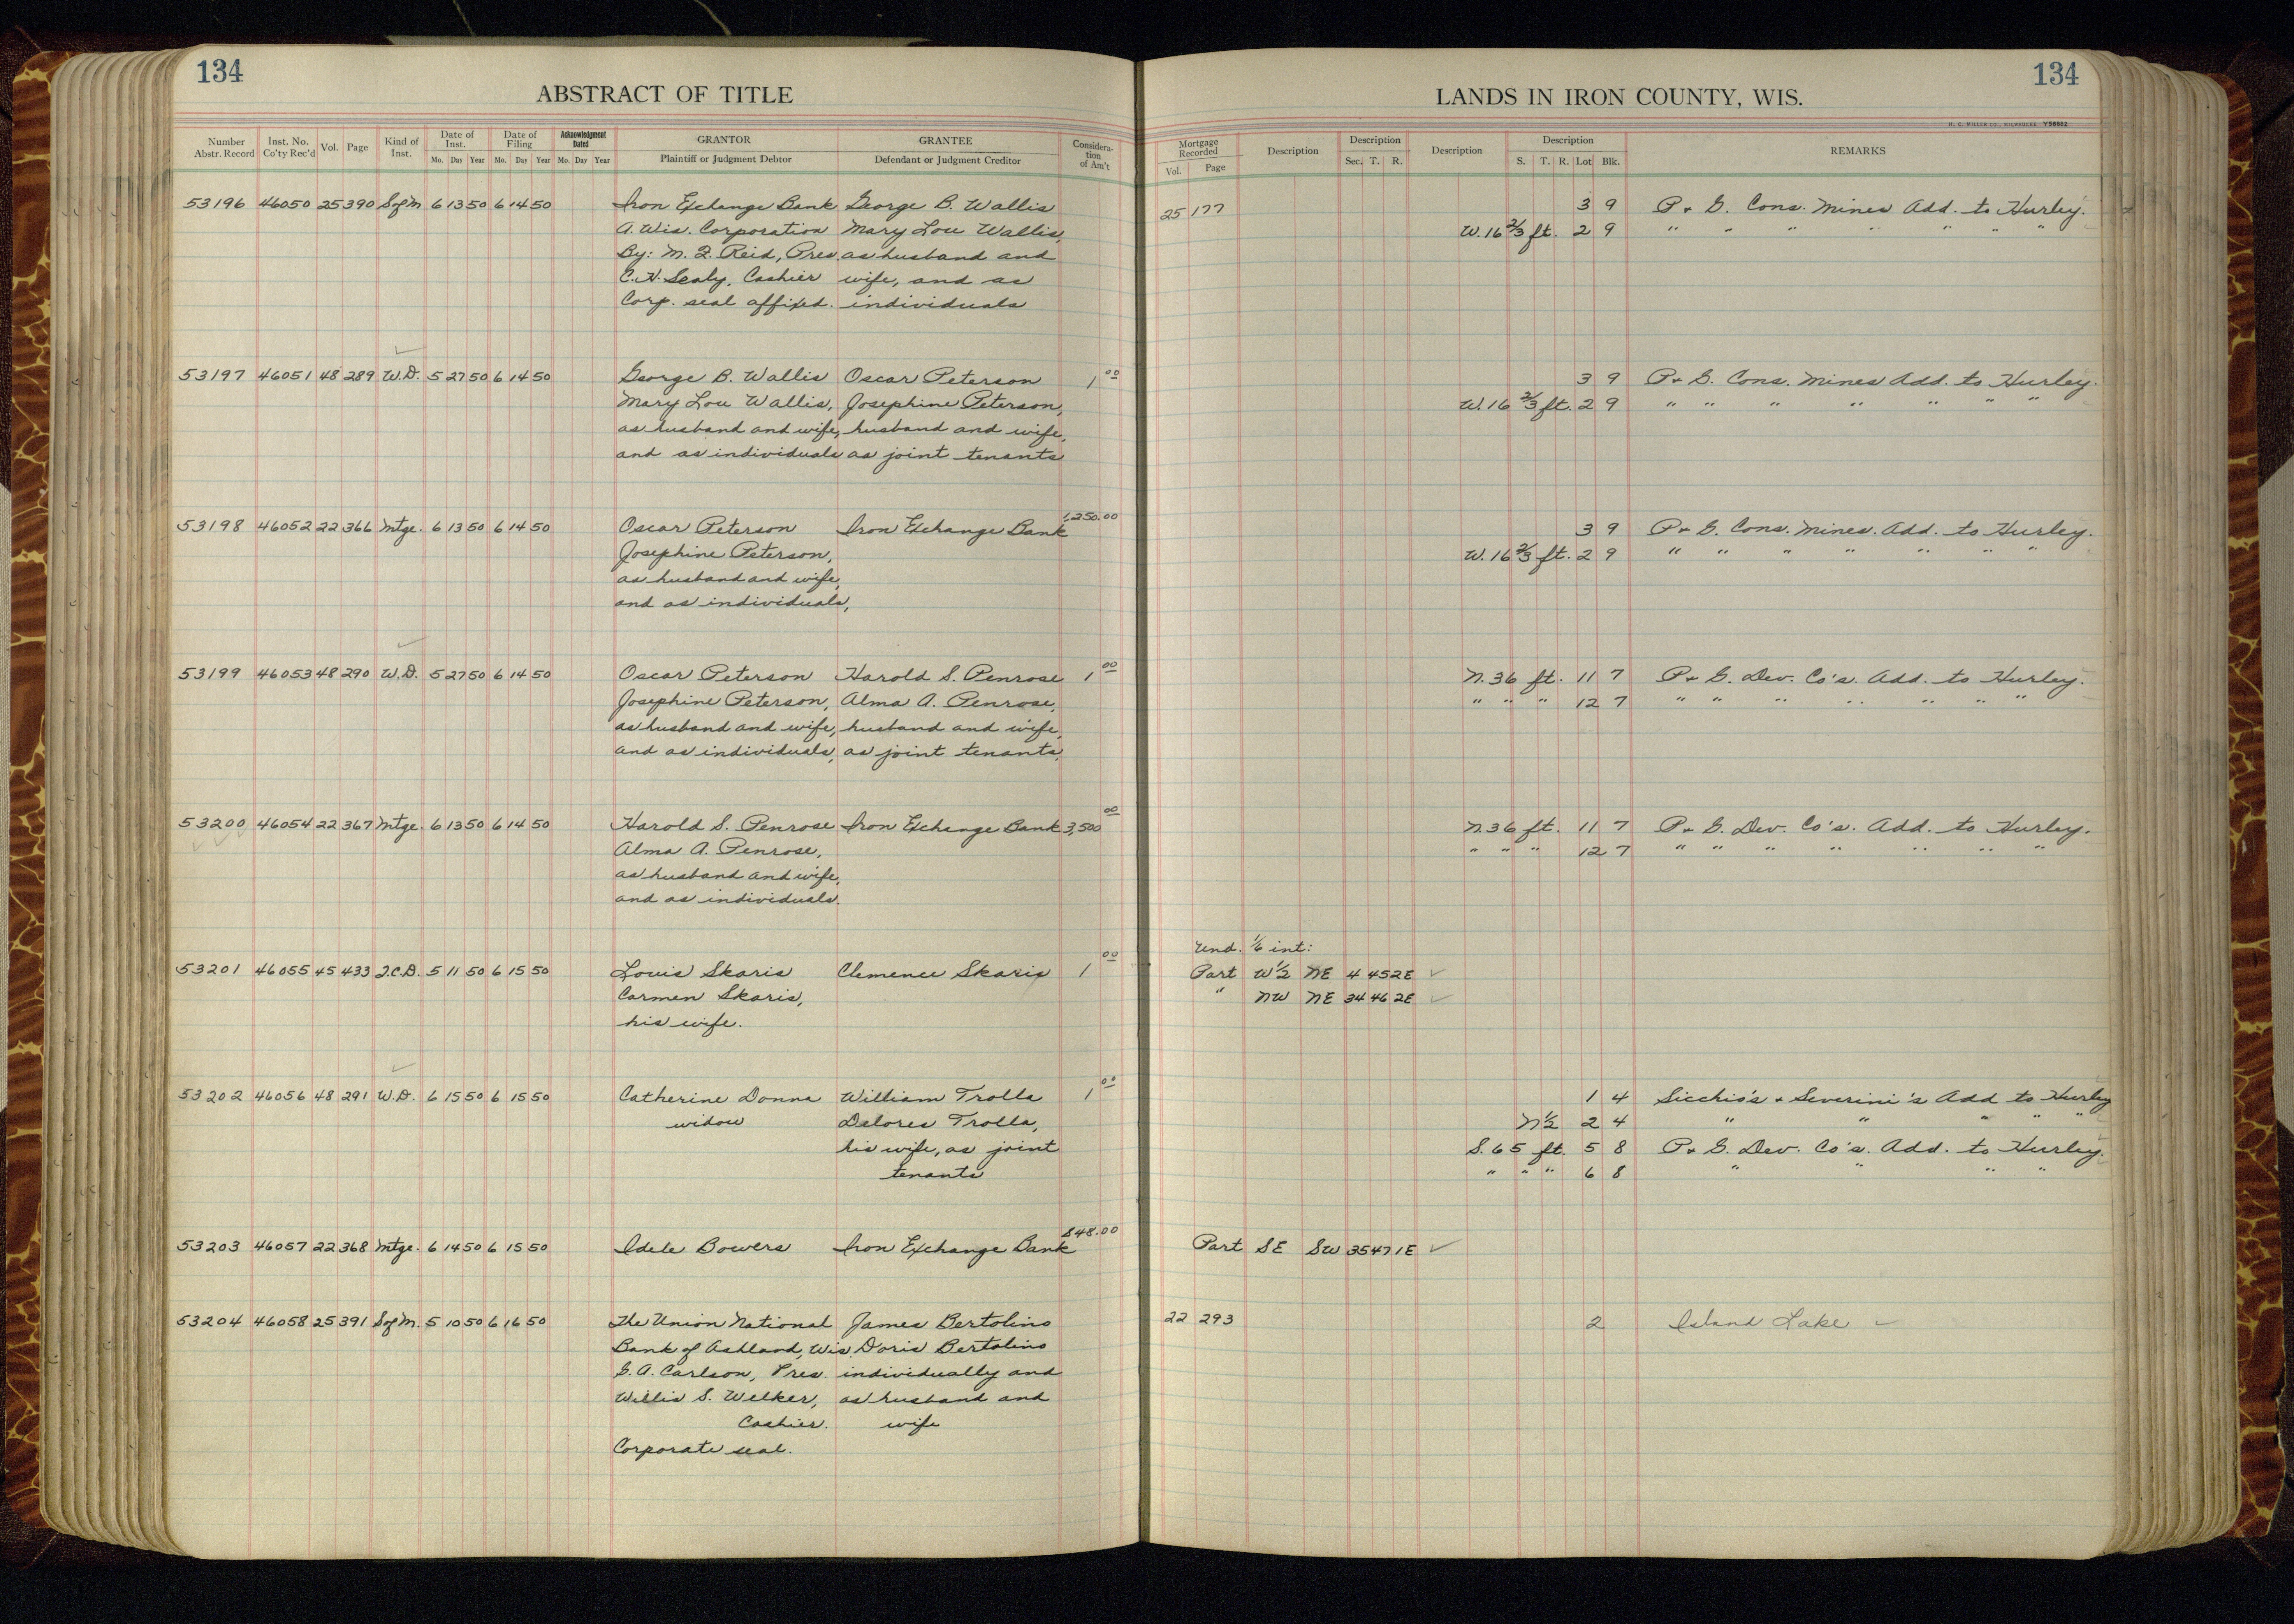 134
ABSTRACT OF TITLE
Number Abstr. Record | Inst. No. Co'ty Rec'd | Vol. | Page | Kind of Inst. | Date of Inst. Mo. Day Year | Date of Filing Mo. Day Year | Acknowledgment Dated Mo. Day Year | GRANTOR Plaintiff or Judgment Debtor | GRANTEE Defendant or Judgment Creditor | Consideration of Am't
53196 46050 25 390 S of M 6 13 50 6 14 50 Iron Exchange Bank George B. Wallis
A. Wis. Corporation Mary Lou Wallis,
By: M. J. Reid, Pres as husband and
C. N. Sealy, Cashier wife, and as
Corp. seal affixed. individuals
53197 46051 48 289 W.D. 5 27 50 6 14 50 George B. Wallis Oscar Peterson 1 00
Mary Lou Wallis, Josephine Peterson,
as husband and wife, husband and wife,
and as individuals as joint tenants
53198 46052 22 366 Mtge. 6 13 50 6 14 50 Oscar Peterson Iron Exchange Bank 1,250.00
Josephine Peterson,
as husband and wife,
and as individuals,
53199 46053 48 290 W.D. 5 27 50 6 14 50 Oscar Peterson Harold S. Penrose 1 00
Josephine Peterson, Alma A. Penrose,
as husband and wife, husband and wife,
and as individuals, as joint tenants,
53200 46054 22 367 Mtge. 6 13 50 6 14 50 Harold S. Penrose Iron Exchange Bank 3,500 00
Alma A. Penrose,
as husband and wife,
and as individuals.
53201 46055 45 433 Q.C.D. 5 11 50 6 15 50 Louis Skaris Clemence Skaris 1 00
Carmen Skaris,
his wife.
53202 46056 48 291 W.D. 6 15 50 6 15 50 Catherine Donna William Trolla 1 00
widow Delores Trolla,
his wife, as joint
tenants
53203 46057 22 368 Mtge. 6 14 50 6 15 50 Idele Bowers Iron Exchange Bank 848.00
53204 46058 25 391 S of M. 5 10 50 6 16 50 The Union National James Bertolino
Bank of Ashland, Wis. Doris Bertolino
G. A. Carlson, Pres. individually and
Willis S. Welker, as husband and
Cashier. wife
Corporate seal.
134
LANDS IN IRON COUNTY, WIS.
H. C. MILLER CO., MILWAUKEE Y56862
Mortgage Recorded Vol. Page | Description | Description Sec. T. R. | Description | Description S. T. R. Lot Blk. | REMARKS
25 177 3 9 P. & G. Cons. Mines Add. to Hurley.
W. 16 2/3 ft. 2 9 " " " " " " "
3 9 P. & G. Cons. Mines Add. to Hurley.
W. 16 2/3 ft. 2 9 " " " " " " "
3 9 P. & G. Cons. Mines. Add. to Hurley.
W. 16 2/3 ft. 2 9 " " " " " " "
N. 36 ft. 11 7 P. & G. Dev. Co's. Add. to Hurley.
" " " 12 7 " " " " " " "
N. 36 ft. 11 7 P. & G. Dev. Co's. Add. to Hurley.
" " " 12 7 " " " " " " "
Und. 1/6 int:
Part W 1/2 NE 4 45 2E ✓
" NW NE 34 46 2E ✓
1 4 Sicchio's & Severini's Add to Hurley
N 1/2 2 4 " " " " "
S. 65 ft. 5 8 P. & G. Dev. Co's. Add. to Hurley.
" " " 6 8 " " " "
Part SE SW 35 47 1E ✓
22 293 2 Island Lake ✓